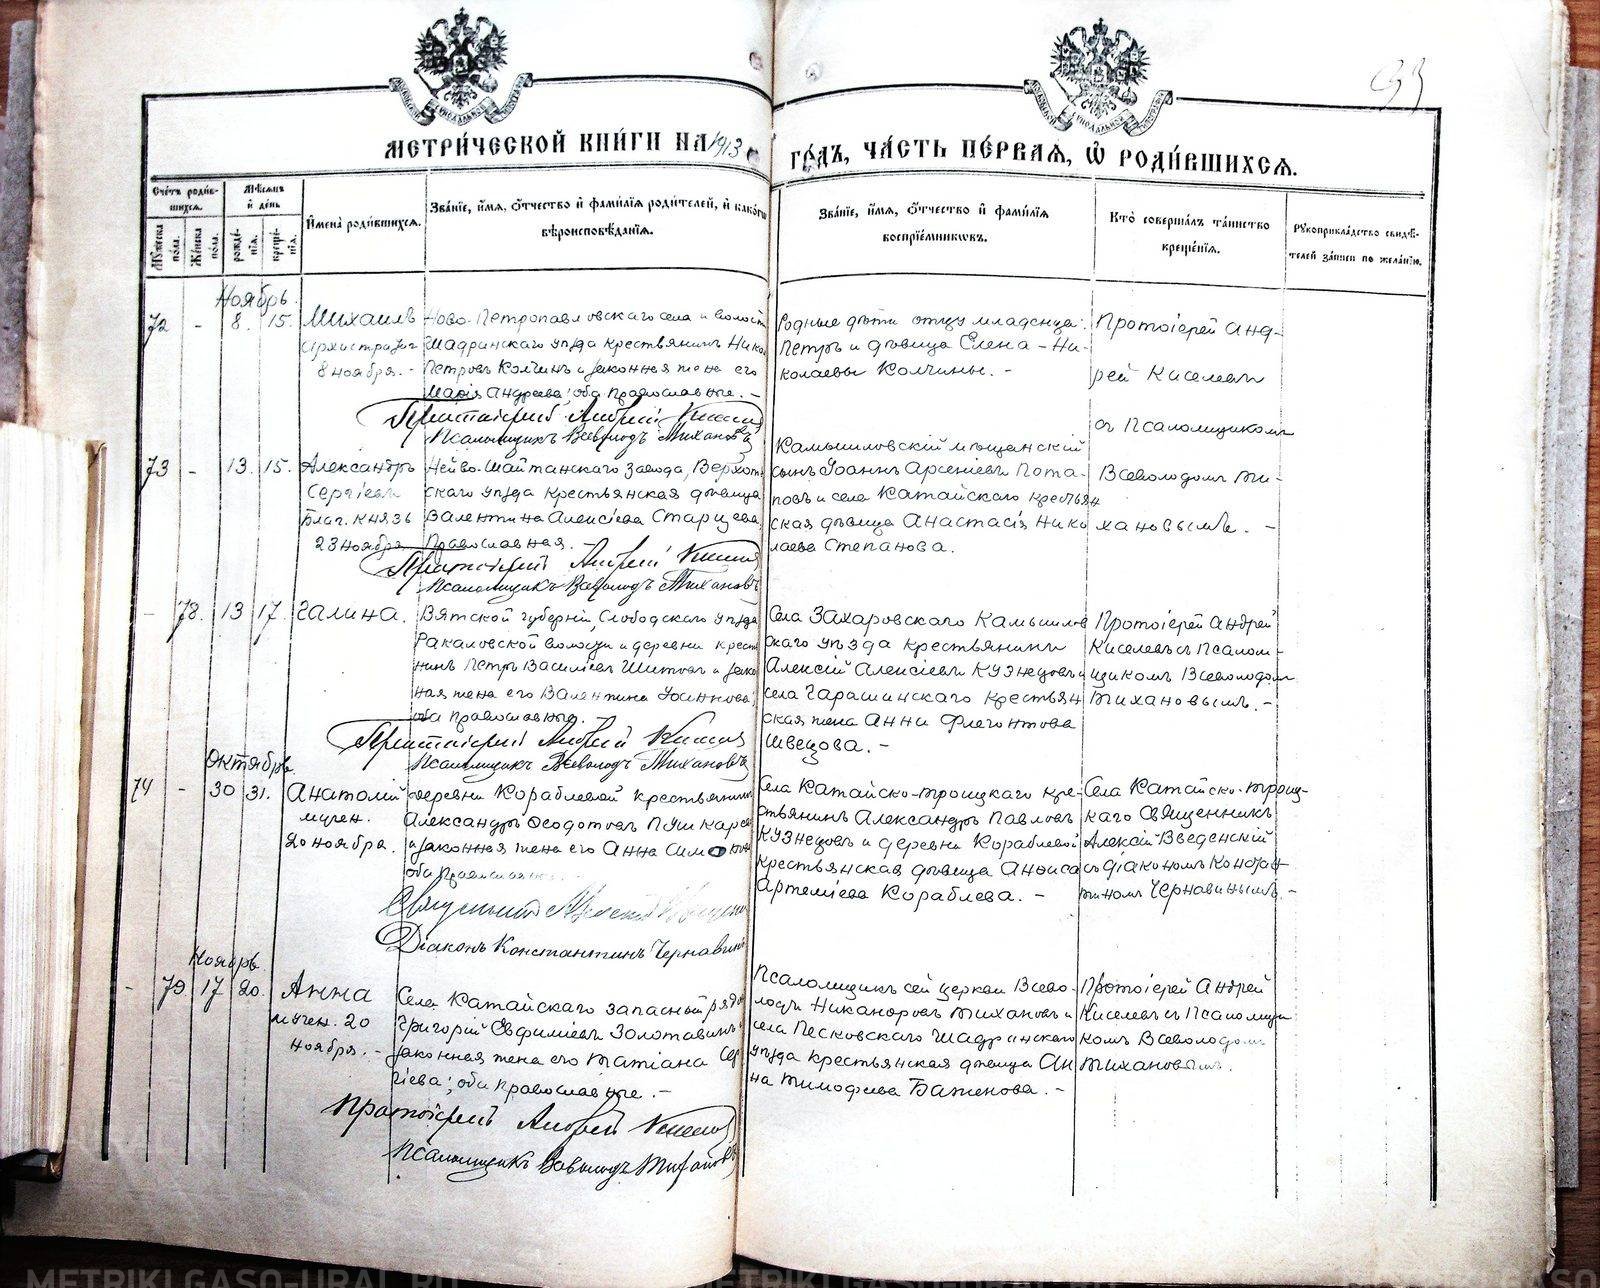 МЕТРИ́ЧЕСКОЙ КНИ́ГИ НА 1913 ГО́ДЪ, ЧА́СТЬ ПЕ́РВАЯ, Ѽ РОДИ́ВШИХСЯ.
Сче́тъ роди́вшихся.
Мѣсяцъ и день
Му́жеска по́ла.
Же́нска по́ла.
рожде́нія.
креще́нія.
Имена́ роди́вшихся.
Зва́ніе, и́мя, о́тчество и фами́лія роди́телей, и како́го
вѣроисповѣ́данія.
Зва́ніе, и́мя, о́тчество и фами́лія
воспріе́мниковъ.
Кто́ соверша́лъ та́инство
креще́нія.
Рукоприкла́дство свидѣ́телей за́писи по жела́нію.
Ноябрь.
72 - 8. 15. Михаилъ
Архистратиг
8 ноября. -
Ново-Петропавловскаго села и волост
Шадринскаго уѣзда крестьянинъ Нико
Петровъ Колчинъ и законная жена его
Марія Андреева; оба православные. -
Протоіерей Андрей Кисел
Псаломщикъ Всеволодъ Тиханов
Родные дѣти отцу младенца:
Петръ и дѣвица Елена - Ни-
колаевы Колчины. -
Протоіерей Анд-
рей Киселевъ
съ Псаломщикомъ
73 - 13. 15. Александръ
Сергіевъ
Благ. князь
23 ноября
Нейво-Шайтанскаго завода, Верхот
скаго уѣзда крестьянская дѣвица
Валентина Алексіева Старцева,
Православная.
Протоіерей Андрей Кисел
Псаломщикъ Всеволодъ Тихановъ
Камышловскій мѣщанскій
сынъ Іоаннъ Арсеніевъ Пота-
повъ и села Катайскаго крестьян
ская дѣвица Анастасія Нико
лаева Степанова.
Всеволодомъ Ти-
хановымъ. -
- 78. 13 17. Галина.
Вятской губерніи, Слободскаго уѣзда
Ракаловской волости и деревни крест
нинъ Петръ Василіевъ Шитовъ и зако
ная жена его Валентина Іоаннова,
оба православные.
Протоіерей Андрей Кисел
Псаломщикъ Всеволодъ Тихановъ
Села Захаровскаго Камышлов
скаго уѣзда крестьянинъ
Алексій Алексіевъ Кузнецовъ и
села Гарашинскаго крестьян
ская жена Анна Флегонтова
Швецова. -
Протоіерей Андрей
Киселевъ съ Псалом-
щикомъ Всеволодом
Тихановымъ. -
Октябрь
74 - 30 31. Анатолій
мучен.
20 ноября.
деревни Кораблевой крестьянинъ
Александръ Ѳеодотовъ Пушкарев
и законная жена его Анна Симоно
оба православные
Священникъ Алексій Введенск
Діаконъ Константинъ Чернавинъ
Села Катайско-Троицкаго кре-
стьянинъ Александръ Павловъ
Кузнецовъ и деревни Кораблевой
крестьянская дѣвица Анѳиса
Артеміева Кораблева. -
Села Катайско-Троиц-
каго Священникъ
Алексій Введенскій
съ діакономъ Констан
тиномъ Чернавинымъ. -
Ноябрь.
- 79. 17 20. Анна
мучен. 20
ноября. -
Села Катайскаго запасный рядо
Григорій Евфиміевъ Золотавинъ
законная жена его Татіана Сер
гіева; оба православные. -
Протоіерей Андрей Киселев
Псаломщикъ Всеволодъ Тихановъ
Псаломщикъ сей церкви Всево-
лодъ Никаноровъ Тихановъ и
села Песковскаго Шадринскаго
уѣзда крестьянская дѣвица Ан
на Тимофеева Баженова. -
Протоіерей Андрей
Киселевъ съ Псаломщи
комъ Всеволодомъ
Тихановымъ.
METRIKI.GASO-URAL.RU